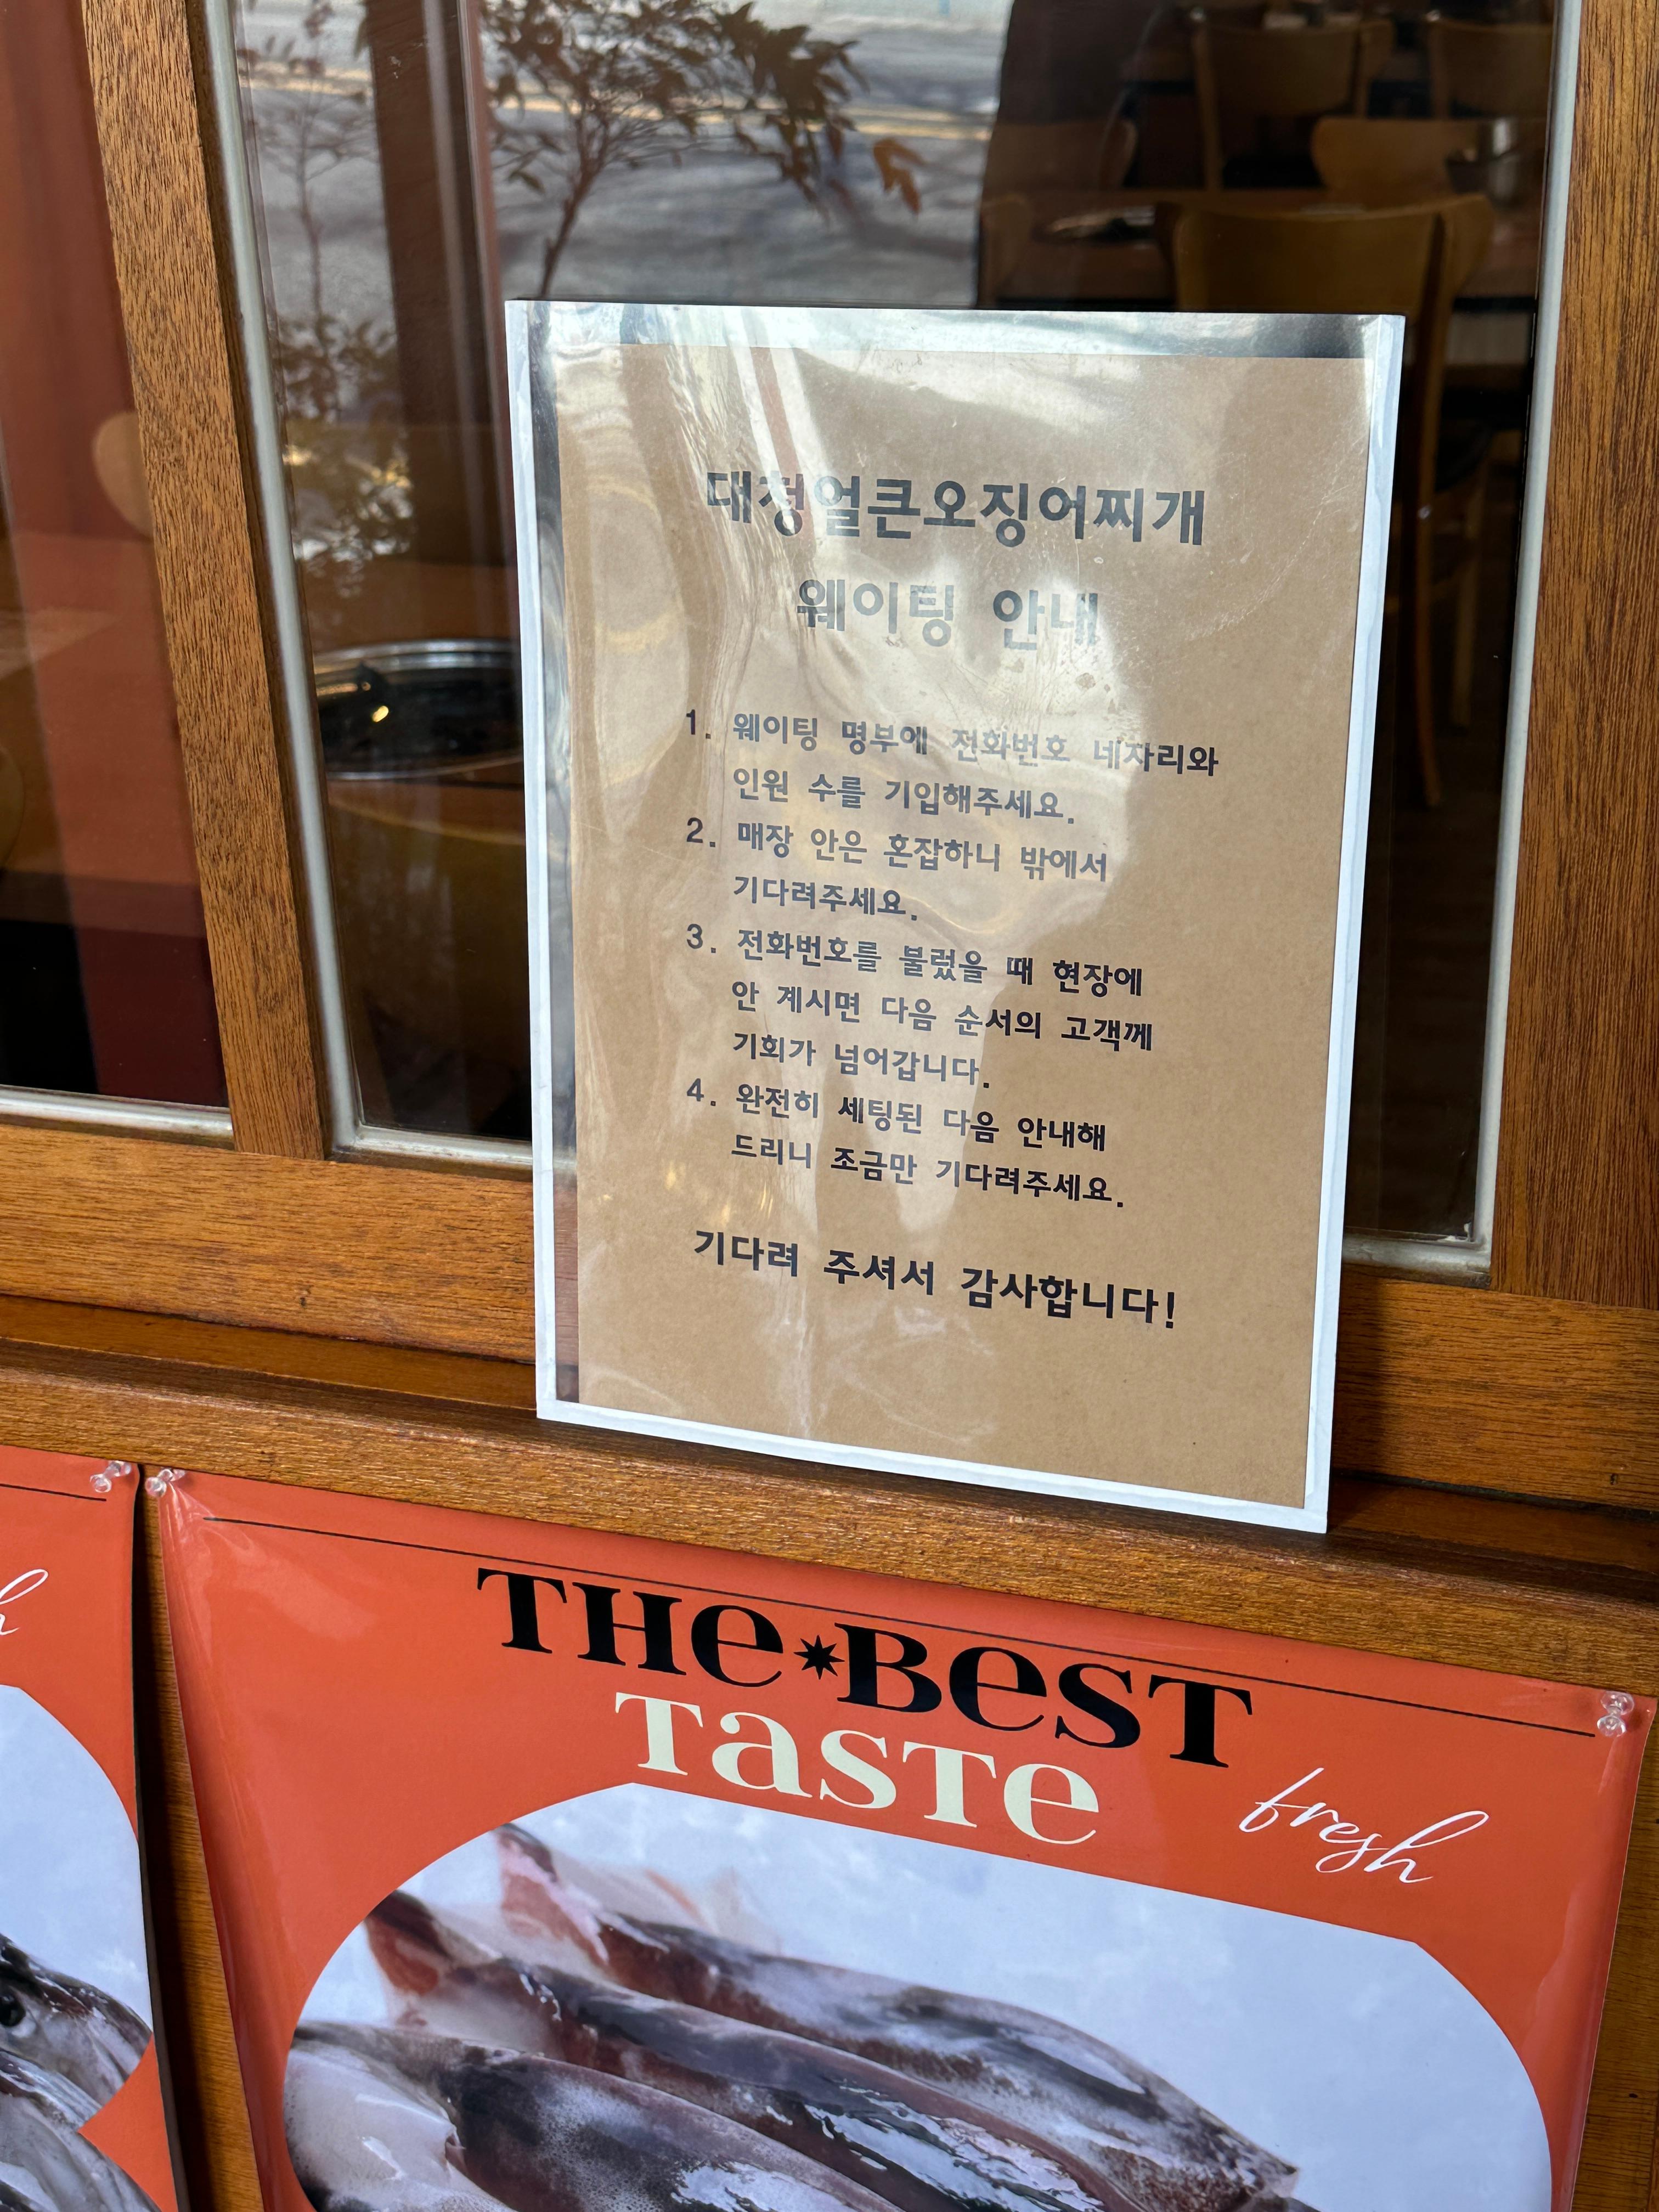 대청얼큰오징어찌개
웨이팅 안내
1. 웨이팅 명부에 전화번호 네자리와
인원 수를 기입해주세요.
2. 매장 안은 혼잡하니 밖에서
기다려주세요.
3. 전화번호를 불렀을 때 현장에
안 계시면 다음 순서의 고객께
기회가 넘어갑니다.
4. 완전히 세팅된 다음 안내해
드리니 조금만 기다려주세요.
기다려 주셔서 감사합니다!
THE BEST
TASTE
fresh